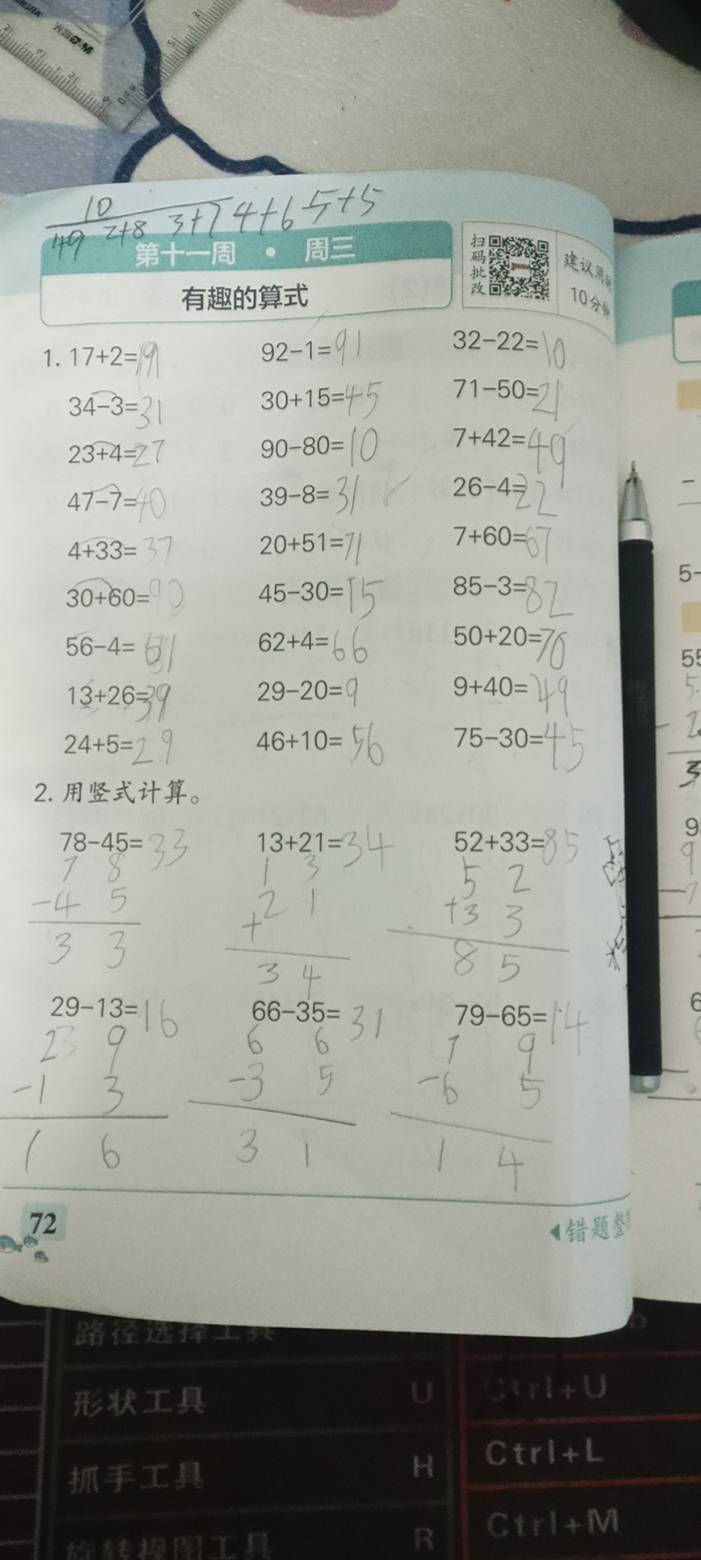 10
49 2+8 3+7 4+6 5+5
第十一周 · 周三
扫码批改
建议用时
10分钟
有趣的算式
1. 17+2=19 92-1=91 32-22=10
34-3=31 30+15=45 71-50=21
23+4=27 90-80=10 7+42=49
47-7=40 39-8=31 26-4=22
4+33=37 20+51=71 7+60=67
30+60=90 45-30=15 85-3=82
56-4=51 62+4=66 50+20=70
13+26=39 29-20=9 9+40=49
24+5=29 46+10=56 75-30=45
2. 用竖式计算。
78-45=33 13+21=34 52+33=85
7 8 1 3 5 2
-4 5 + 2 1 +3 3
3 3 3 4 8 5
29-13=16 66-35=31 79-65=14
2 9 6 6 7 9
-1 3 -3 5 -6 5
1 6 3 1 1 4
72
错题整
路径选择工具
形状工具 U Ctrl+U
抓手工具 H Ctrl+L
旋转视图工具 R Ctrl+M